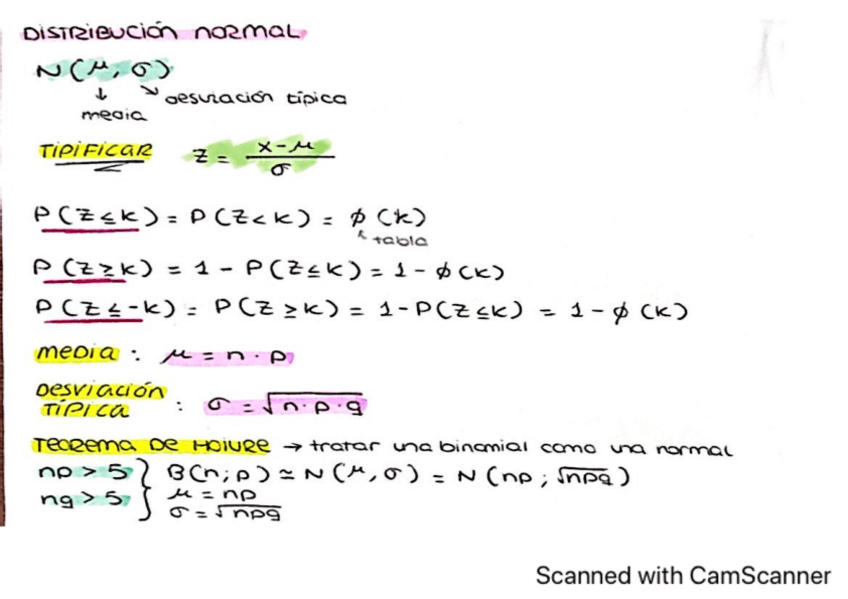 DISTRIBUCIÓN NORMAL
N(μ, σ)
↓ ↘ desviación típica
media
TIPIFICAR Z = x-μ / σ
P(Z ≤ k) = P(Z < k) = φ(k)
tabla
P(Z ≥ k) = 1 - P(Z ≤ k) = 1 - φ(k)
P(Z ≤ -k) = P(Z ≥ k) = 1 - P(Z ≤ k) = 1 - φ(k)
MEDIA : μ = n · p
DESVIACIÓN
TÍPICA : σ = √n·p·q
TEOREMA DE MOIVRE → tratar una binomial como una normal
np > 5 } B(n; p) ≃ N(μ, σ) = N(np ; √npq)
nq > 5 } μ = np
σ = √npq
Scanned with CamScanner